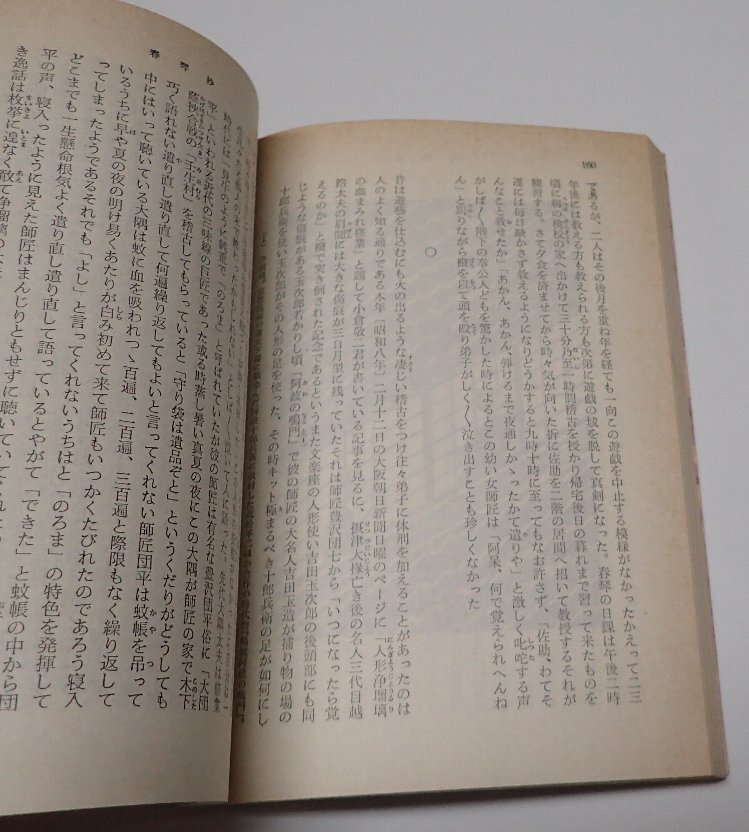 160
であるが、二人はその後月を重ね年を経ても一向この遊戯を中止する模様がなかったかえって二三
年後には教える方も教えられる方も次第に遊戯の域を脱して真剣になった。春琴の日課は午後二時
頃に靱の検校の家へ出かけて三十分乃至一時間稽古を授かり帰宅後日の暮れまで習って来たものを
練習する。さて夕食を済ませてから時々気が向いた折に佐助を二階の居間へ招いて教授するそれが
遂には毎日欠かさず教えるようになりどうかすると九時十時に至ってもなお許さず、「佐助、わてそ
んなこと教せたか」「あかん、あかん、弾けるまで夜通しかゝったかて遣りや」と激しく叱咤する声
がしば〱階下の奉公人どもを驚かした時によるとこの幼い女師匠は「阿呆、何で覚えられへんね
ん」と罵りながら撥を以て頭を殴り弟子がしく〱泣き出すことも珍しくなかった
○
昔は遊藝を仕込むにも火の出るような凄じい稽古をつけ往々弟子に体刑を加えることがあったのは
人のよく知る通りである本年〔昭和八年〕二月十二日の大阪朝日新聞日曜のページに「人形浄瑠璃
の血まみれ修業」と題して小倉敬二君が書いている記事を見るに、摂津大掾亡き後の名人三代目越
路太夫の眉間には大きな傷痕が三日月型に残っていたそれは師匠豊沢団七から「いつになったら覚
えるのか」と撥で突き倒された記念であるというまた文楽座の人形使い吉田玉次郎の後頭部にも同
じような傷痕がある玉次郎若かりし頃「阿波の鳴門」で彼の師匠の大名人吉田玉造が捕り物の場の
十郎兵衛を使い玉次郎がその人形の足を使った、その時キット極まるべき十郎兵衛の足が如何にし
春琴抄
時代には
平」といわれる近代の三味線の巨匠であった或る時蒸し暑い真夏の夜にこの大隅が師匠の家で木下
蔭挾合戦の「壬生村」を稽古してもらっていると「守り袋は遺品ぞと」というくだりがどうしても
巧く語れない遣り直し遣り直して何遍繰り返してもよいと言ってくれない師匠団平は蚊帳を吊って
中にはいって聴いている大隅は蚊に血を吸われつゝ百遍、二百遍、三百遍と際限もなく繰り返して
いるうちに早や夏の夜の明け易くあたりが白み初めて来て師匠もいつかくたびれたのであろう寝入
ってしまったようであるそれでも「よし」と言ってくれないうちはと「のろま」の特色を発揮して
どこまでも一生懸命根気よく遣り直し遣り直して語っているとやがて「できた」と蚊帳の中から団
平の声、寝入ったように見えた師匠はまんじりともせずに聴いていてくれ
き逸話は枚挙に遑なく敢て浄瑠璃の